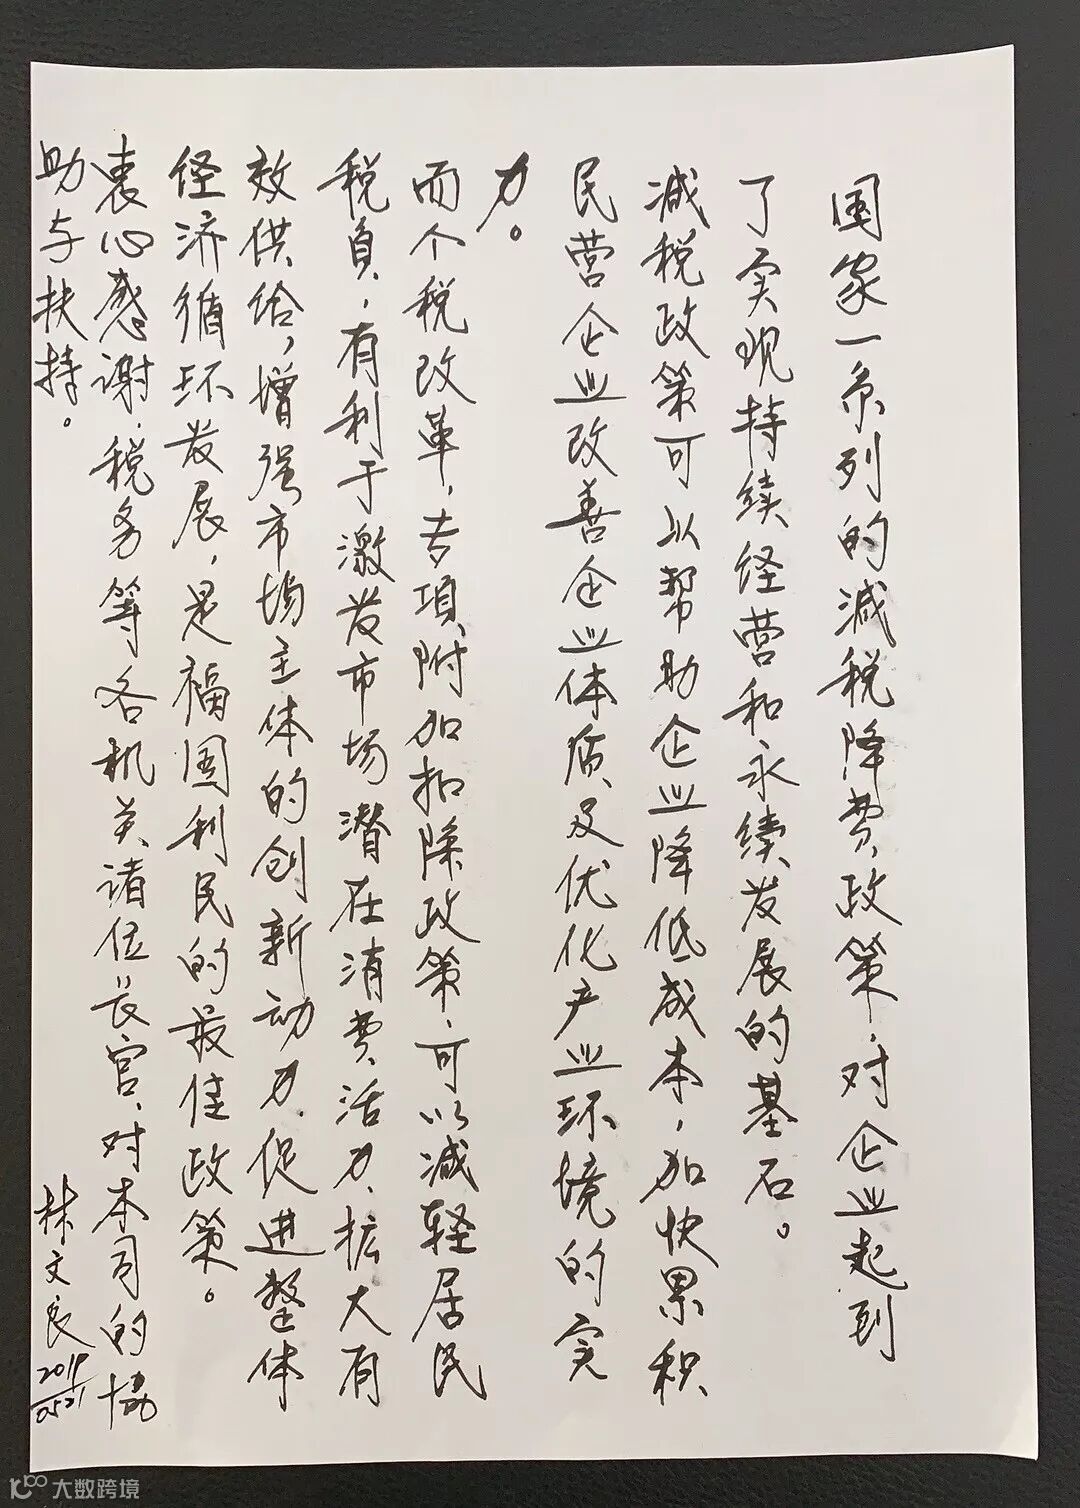 国家一系列的减税降费政策，对企业起到
了实现持续经营和永续发展的基石。
减税政策可以帮助企业降低成本，加快累积
民营企业改善企业体质及优化产业环境的实
力。
而个税改革，专項附加扣除政策，可以减轻居民
税負，有利于激发市场潜在消费活力、扩大有
效供给，增强市场主体的创新动力、促进整体
经济循环发展，是福国利民的最佳政策。
衷心感谢，税务等各机关诸位"长官、对本司的協
助与扶持。
林文良
2019
05.21
大数跨境